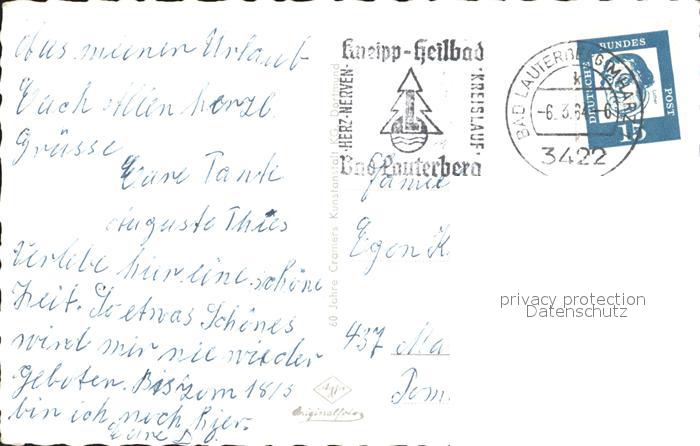 Aus meinem Urlaub
Euch Allen herzl.
Grüsse
Eure Tante
Auguste Thies
Verlebe hier eine schöne
Zeit. So etwas Schönes
wird mir nie wieder
geboten. Bis zum 18/3
bin ich noch hier.
Eure
60 Jahre Cramers Kunstanstalt KG, Dortmund
Kneipp-Heilbad
·HERZ·NERVEN·
·KREISLAUF·
Bad Lauterberg
BAD LAUTERBERG IM HARZ
-6.3.64
3422
BUNDES
DEUTSCHE
POST
15
Familie
Egon K
437 Ma
Dom
privacy protection
Datenschutz
Originalfoto